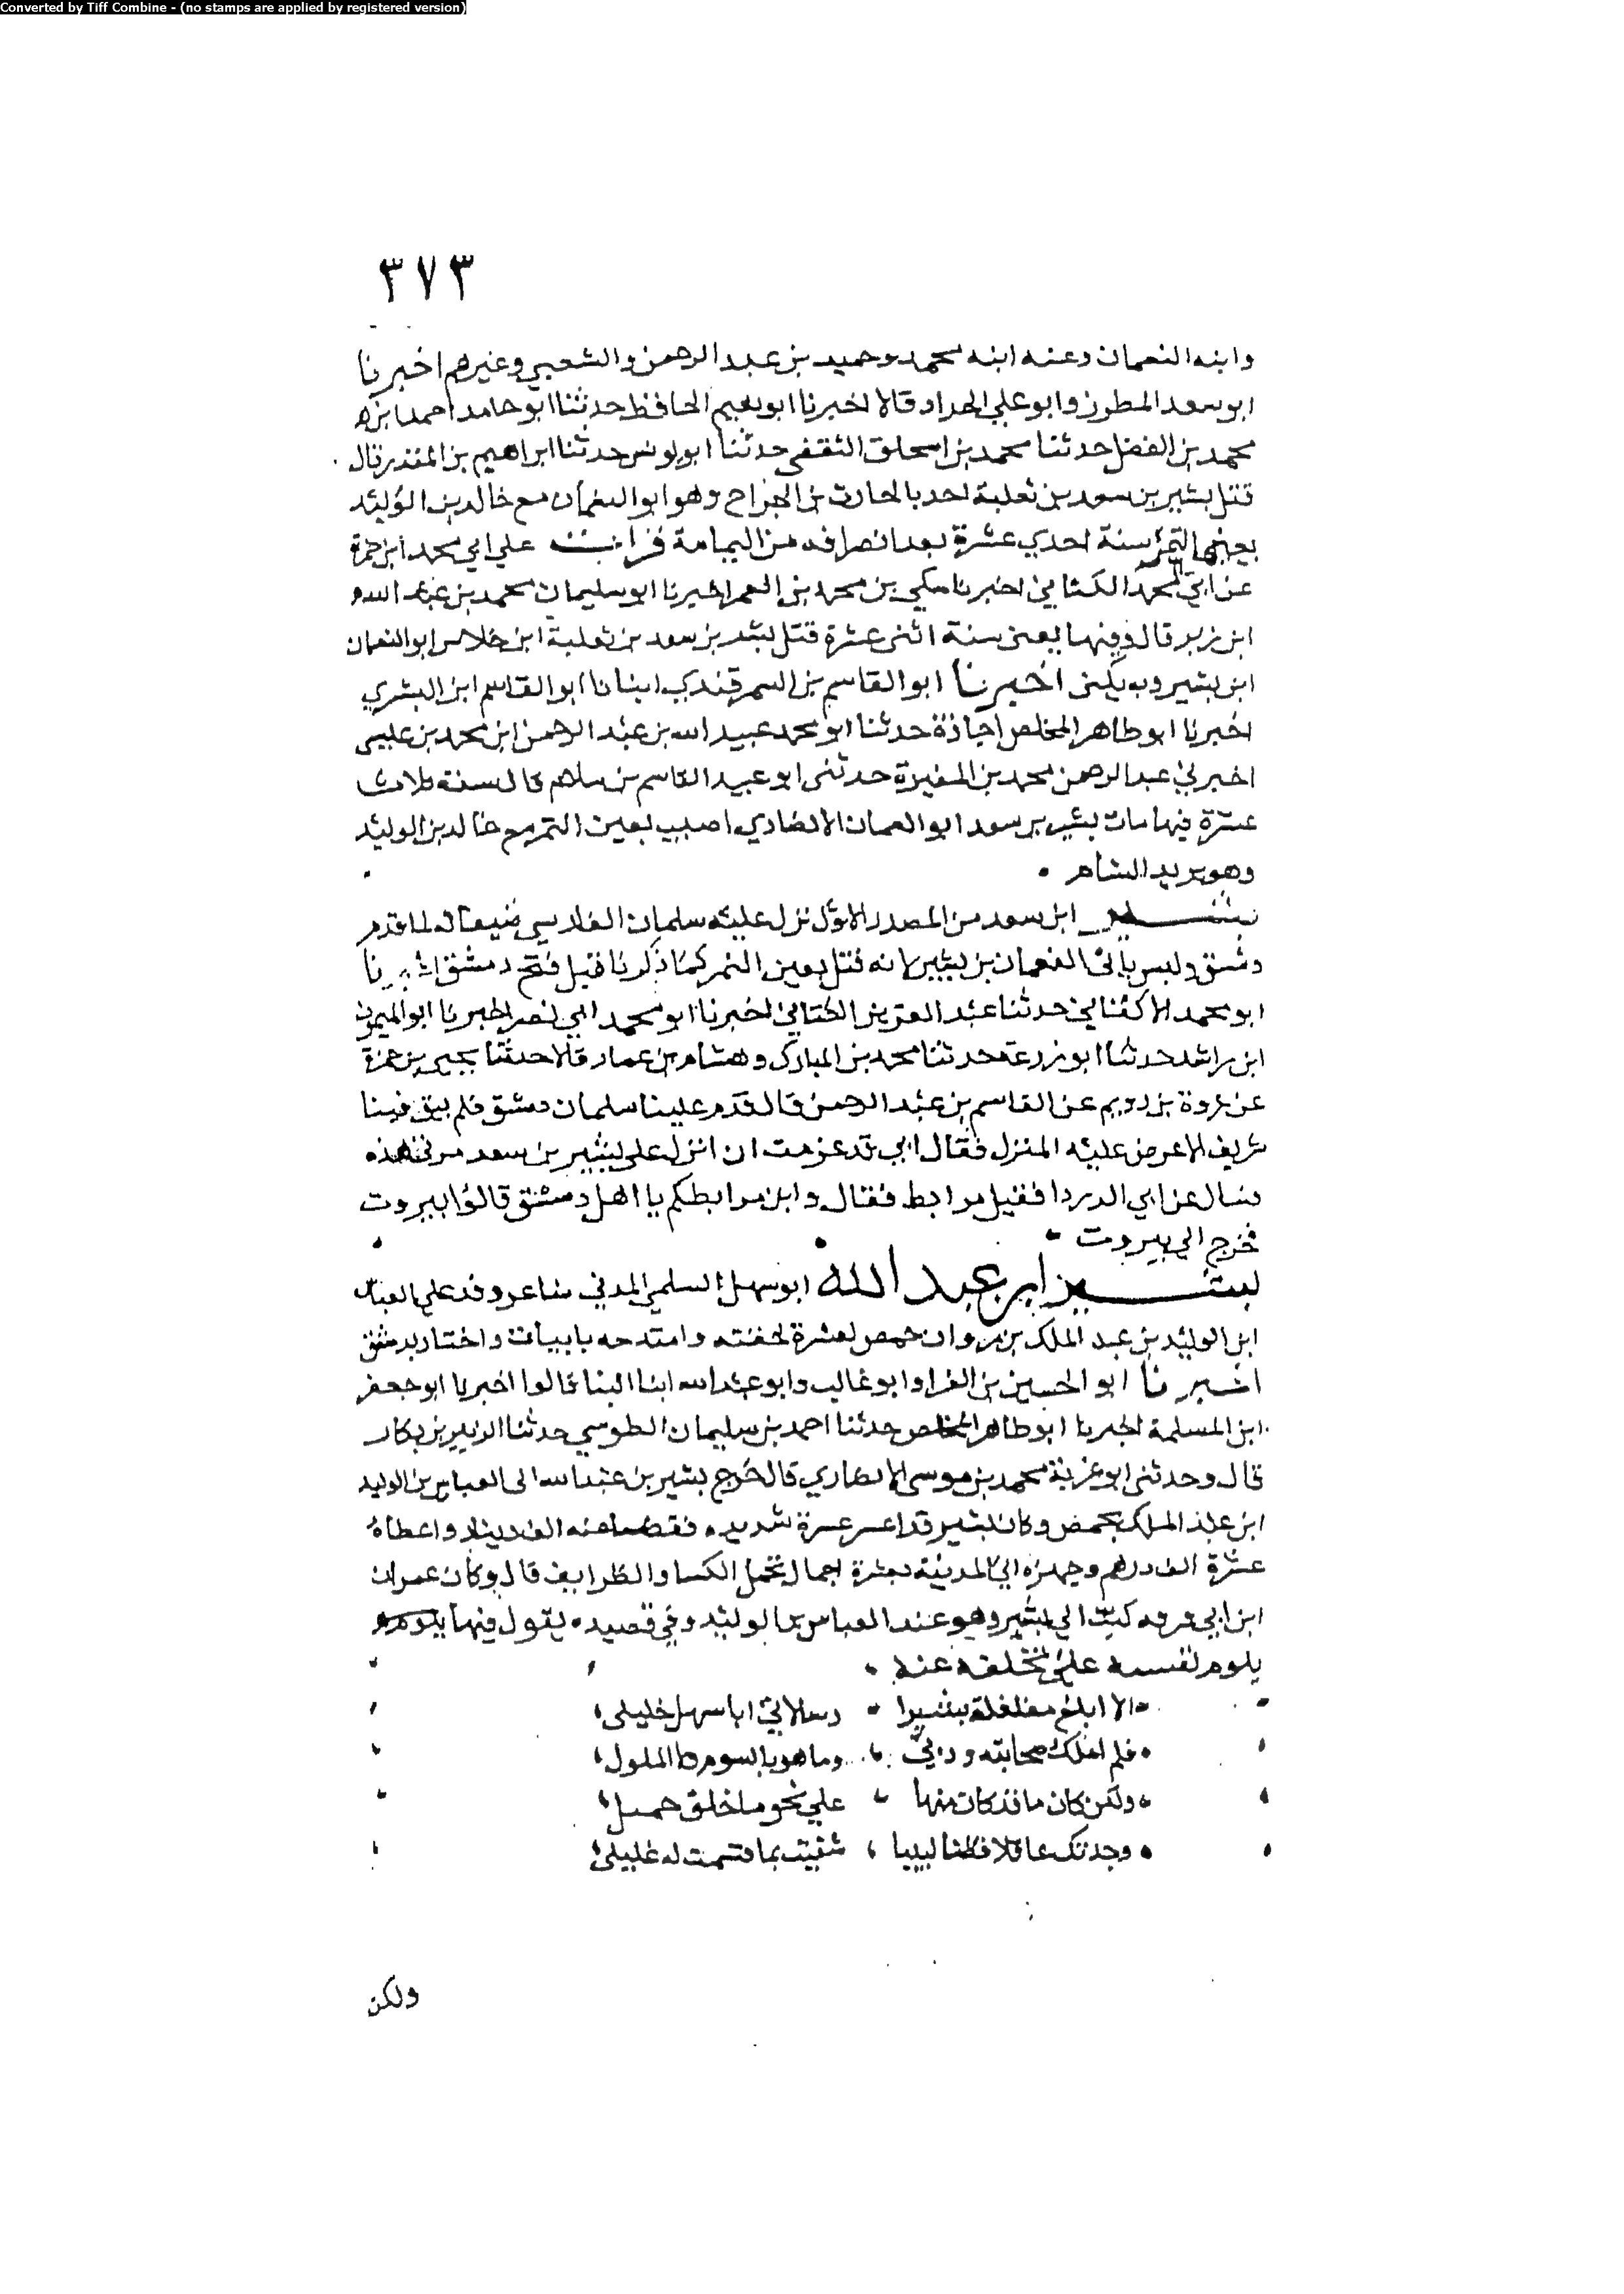 Converted by Tiff Combine - (no stamps are applied by registered version)
٣٧٣
وابنه النعمان وعنه ابنه محمد وحميد بن عبد الرحمن والشعبي وغيرهم اخبرنا
ابو سعد المطرز وابو علي الحداد قالا اخبرنا ابو نعيم الحافظ حدثنا ابو حامد احمد ابن
محمد بن الفضل حدثنا محمد بن اسحاق الثقفي حدثنا ابو يونس حدثنا ابراهيم بن المنذر قال
قتل بشير بن سعد بن ثعلبة احد بالحارث بن الجزاح وهو ابو النعمان مع خالد بن الوليد
بعين التمر سنة احدي عشرة بعد انصرافه من اليمامة قرات علي ابي محمد ابن حمزة
عن ابي محمد الكتاني اخبرنا مكي بن محمد بن الغمر اخبرنا ابو سليمان محمد بن عبد الله
ابن زبر قال وفيها يعني سنة اثني عشرة قتل بشير بن سعد بن ثعلبة ابن خلاس ابو النعمان
ابن بشير وبه يكنى اخبرنا ابو القاسم بن السمرقندي انبانا ابو القاسم ابن البشري
اخبرنا ابو طاهر المخلص اجازة حدثنا ابو محمد عبيد الله بن عبد الرحمن ابن محمد بن عيسى
اخبرني عبد الرحمن محمد بن المغيرة حدثني ابو عبيد القاسم بن سلام قال سنة ثلاث
عشرة فيها مات بشير بن سعد ابو النعمان الانصاري اصيب بعين التمر مع خالد بن الوليد
وهو يريد الشام
بشير ابن سعد من المصدر الاول نزل عليه سلمان الفارسي ضيفا له لما قدم
دمشق وليس بابي النعمان بن بشير لانه قتل بعين التمر كما ذكرنا قبل فتح دمشق اخبرنا
ابو محمد الاكفاني حدثنا عبد العزيز الكتاني اخبرنا ابو محمد ابي نصر اخبرنا ابو الميمون
ابن راشد حدثنا ابو زرعة حدثنا محمد بن المبارك وهشام بن عمار قالا حدثنا يحيى بن حمزة
عن عروة بن رويم عن القاسم بن عبد الرحمن قال قدم علينا سلمان دمشق فلم يبق فينا
شريف الا عرض عليه المنزل فقال اني قد عزمت ان انزل علي بشير بن سعد مرتي هذه
فسال عن ابي الدردا فقيل مرابط فقال واين مرابطكم يا اهل دمشق قالوا بيروت
فخرج الي بيروت
بشير ابن عبد الله ابو سهل السلمي المدني شاعر وفد علي العباس
ابن الوليد بن عبد الملك بن مروان حمص لعشرة لحقته وامتدحه بابيات واختار بدمشق
اخبرنا ابو الحسين بن الفرا وابو غالب وابو عبد الله ابنا البنا قالوا اخبرنا ابو جعفر
ابن المسلمة اخبرنا ابو طاهر المخلص حدثنا احمد بن سليمان الطوسي حدثنا الزبير بن بكار
قال وحدثني ابو غزية محمد بن موسى الانصاري قال خرج بشير بن عبد الله الى العباس بن الوليد
ابن عبد الملك بحمص وكان بشير قد اعسر عسرة شديدة فقضا عنه الف دينار واعطاه
عشرة الف درهم وجهزه الي المدينة بعشرة اجمال تحمل الكسا والظرايف قال وكان عمران
ابن ابي فروه كتب الي بشير وهو عند العباس بن الوليد وفي قصيده يقول فيها يلومه
يلوم نفسه علي تخلفه عنه
الا ابلغ مغلغلة بشيرا رسلا بي ابا سهل خليلى
فلم املك صحابته وربي وما هو بالسوم ولا الملول
ولكن كان ما قد كان منها علي نحو ما خلق جميل
وجدتك عاقلا فطنا لبيبا شفيت بما قسمت له غليلي
ولكن